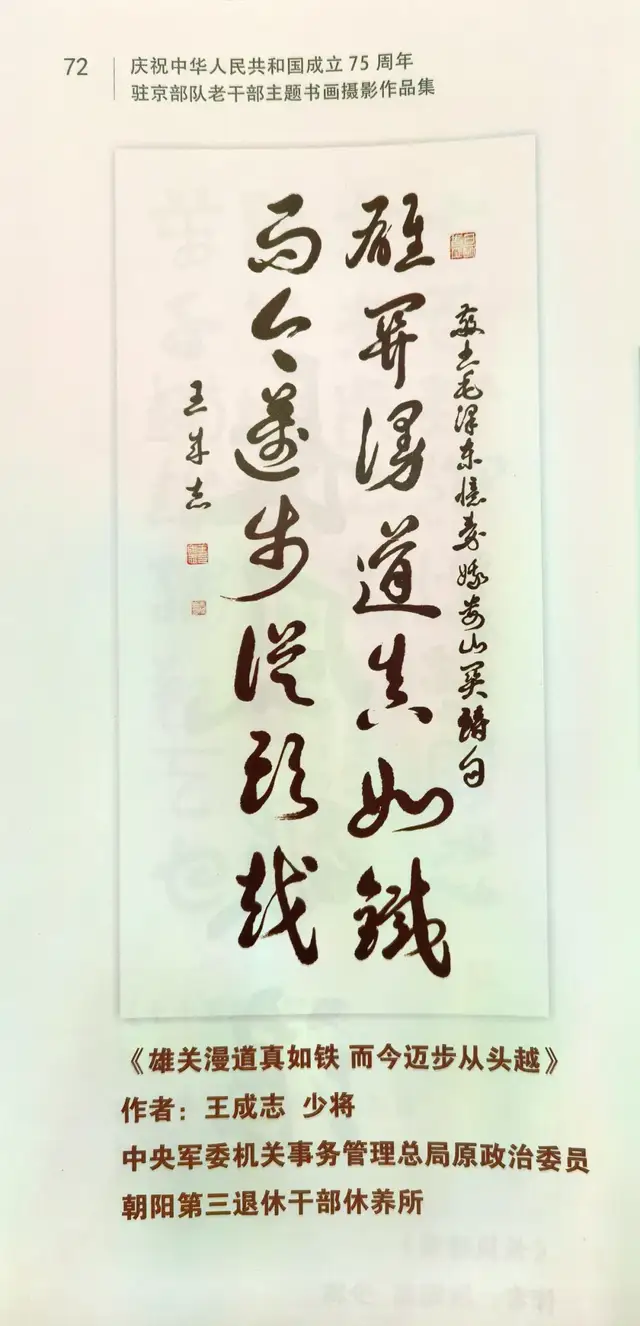 72
庆祝中华人民共和国成立75周年
驻京部队老干部主题书画摄影作品集
敬书毛泽东憶秦娥娄山关诗句
雄关漫道真如鐵
而今邁步從頭越
王成志
《雄关漫道真如铁 而今迈步从头越》
作者：王成志 少将
中央军委机关事务管理总局原政治委员
朝阳第三退休干部休养所